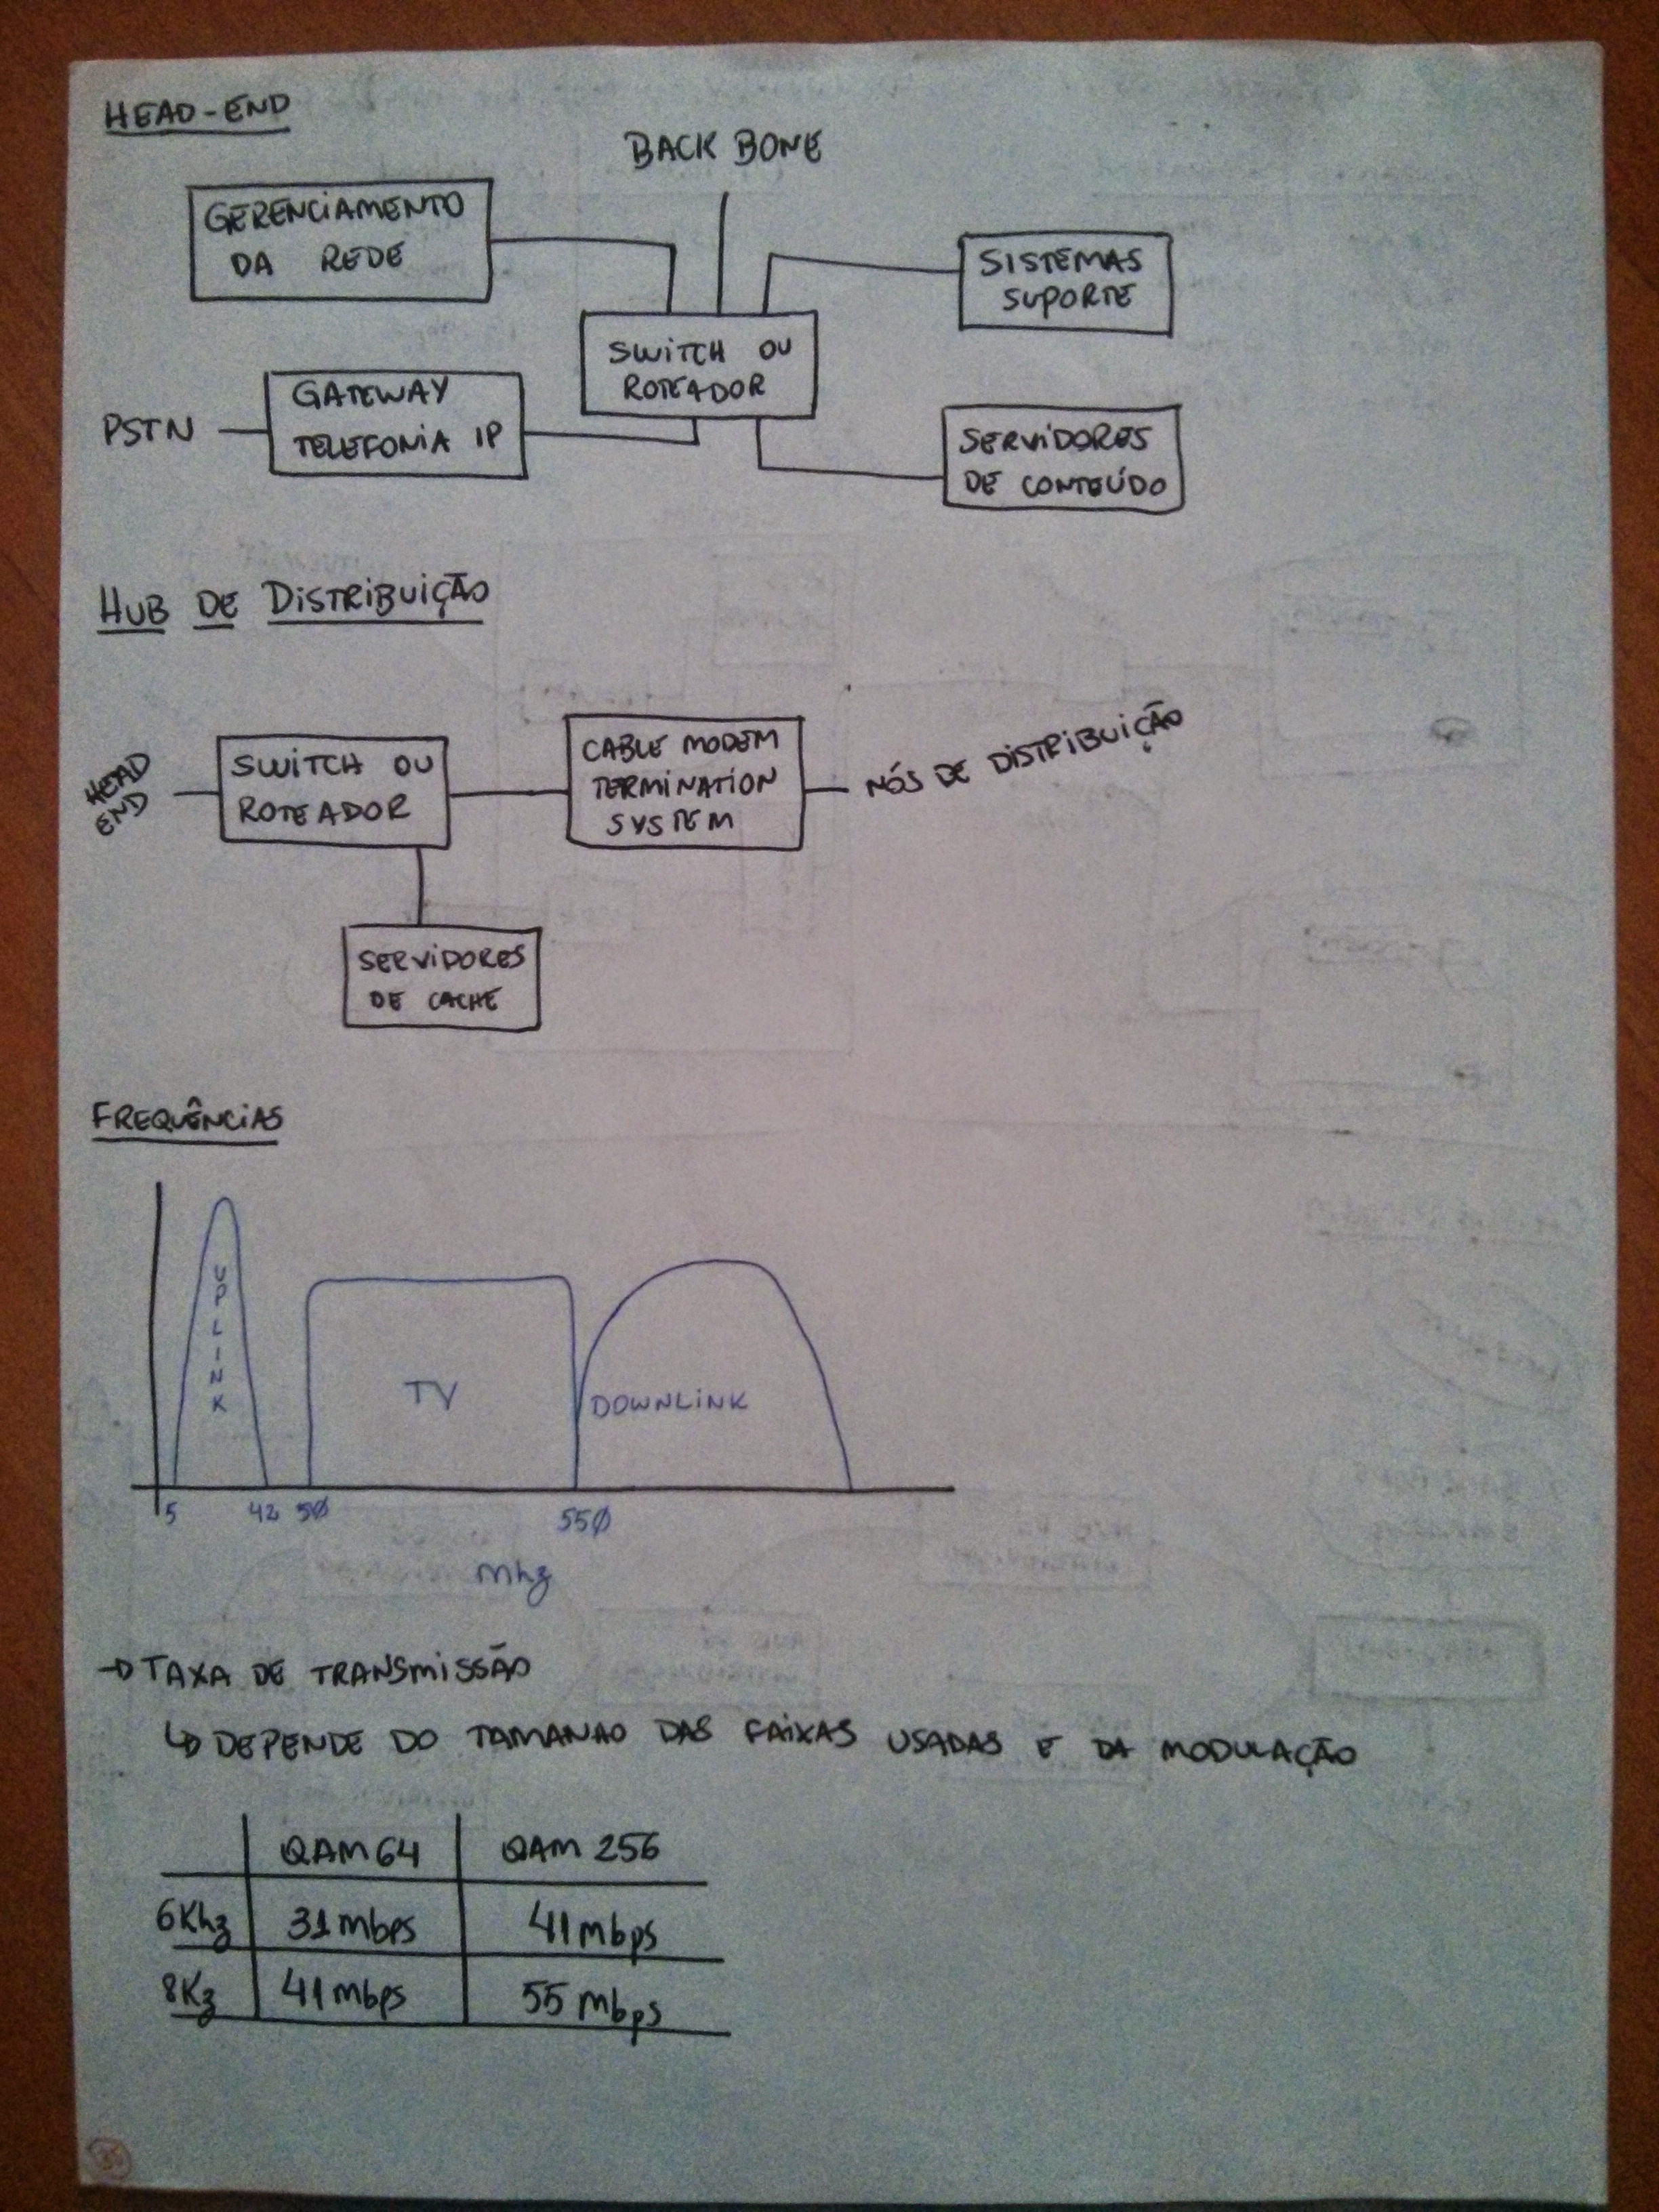 HEAD-END
BACK BONE
GERENCIAMENTO
DA REDE
SISTEMAS
SUPORTE
SWITCH OU
ROTEADOR
PSTN
GATEWAY
TELEFONIA IP
SERVIDORES
DE CONTEÚDO
HUB DE DISTRIBUIÇÃO
HEAD
END
SWITCH OU
ROTEADOR
CABLE MODEM
TERMINATION
SYSTEM
NÓS DE DISTRIBUIÇÃO
SERVIDORES
DE CACHE
FREQUÊNCIAS
UPLINK
TV
DOWNLINK
5 42 50 550
Mhz
→ TAXA DE TRANSMISSÃO
↳ DEPENDE DO TAMANHO DAS FAIXAS USADAS E DA MODULAÇÃO
QAM 64 QAM 256
6Khz 31 mbps 41 mbps
8Kz 41 mbps 55 mbps